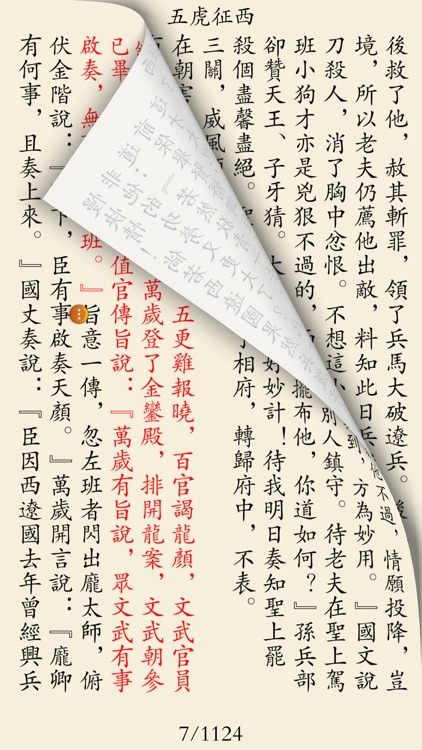 五虎征西
後救了他，赦其斬罪，領了兵馬大破遼兵。他不過，情願投降，豈
境，所以老夫仍薦他出敵，料知此日兵到，方為妙用。』國文說
刀殺人，消了胸中忿恨。不想這小別人鎮守。待老夫在聖上駕
班小狗才亦是兇狠不過的，擺布他，你道如何？』孫兵部
卻贊天王、子牙猜。大好妙計！待我明日奏知聖上罷
殺個盡馨盡絕。了相府，轉歸府中，不表。
三關，威風
在朝害五更雞報曉，百官謁龍顏，文武官員
萬歲登了金鑾殿，排開龍案，文武朝參
已畢值官傳旨說：『萬歲有旨說，眾文武有事
啟奏，無班。』旨意一傳，忽左班者閃出龐太師，俯
伏金階說：『下，臣有事啟奏天顏。』萬歲開言說：『龐卿
有何事，且奏上來。』國丈奏說：『臣因西遼國去年曾經興兵
7/1124